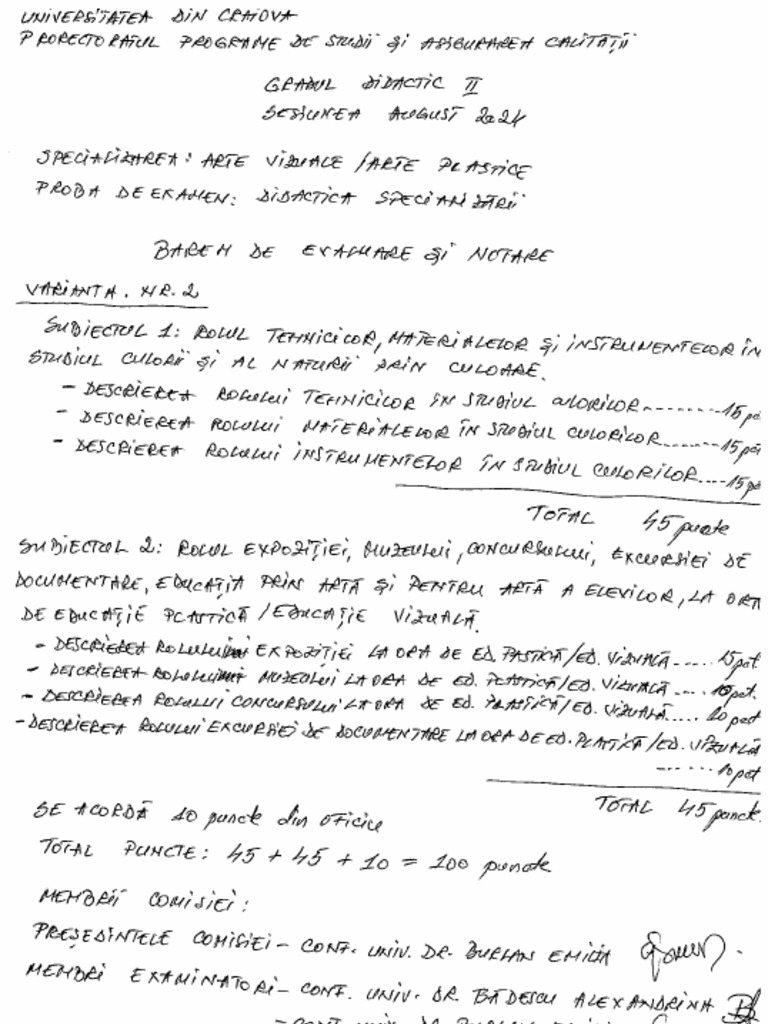 UNIVERSITATEA DIN CRAIOVA
PRORECTORATUL PROGRAME DE STUDII ȘI ASIGURAREA CALITĂȚII
GRADUL DIDACTIC II
SESIUNEA AUGUST 2024
SPECIALIZAREA: ARTE VIZUALE /ARTE PLASTICE
PROBA DE EXAMEN: DIDACTICA SPECIALIZĂRII
BAREM DE EVALUARE ȘI NOTARE
VARIANTA. NR. 2
SUBIECTUL 1: ROLUL TEHNICILOR, MATERIALELOR ȘI INSTRUMENTELOR ÎN
STUDIUL CULORII ȘI AL NATURII PRIN CULOARE.
- DESCRIEREA ROLULUI TEHNICILOR ÎN STUDIUL CULORILOR ........ 15 pc
- DESCRIEREA ROLULUI MATERIALELOR ÎN STUDIUL CULORILOR ....... 15 pc
- DESCRIEREA ROLULUI INSTRUMENTELOR ÎN STUDIUL CULORILOR .... 15 pc
TOTAL 45 puncte
SUBIECTUL 2: ROLUL EXPOZIȚIEI, MUZEULUI, CONCURSULUI, EXCURSIEI DE
DOCUMENTARE, EDUCAȚIA PRIN ARTĂ ȘI PENTRU ARTĂ A ELEVILOR, LA ORA
DE EDUCAȚIE PLASTICĂ / EDUCAȚIE VIZUALĂ.
- DESCRIEREA ROLULUI EXPOZIȚIEI LA ORA DE ED. PASTICĂ/ED. VIZUALĂ ..... 15 pct
- DESCRIEREA ROLULUI MUZEULUI LA ORA DE ED. PLASTICĂ/ED. VIZUALĂ .... 10 pct.
- DESCRIEREA ROLULUI CONCURSULUI LA ORA DE ED. PLASTICĂ/ED. VIZUALĂ .... 10 pct
- DESCRIEREA ROLULUI EXCURSIEI DE DOCUMENTARE LA ORA DE ED. PLATICĂ/ED. VIZUALĂ
...... 10 pct
TOTAL 45 puncte.
SE ACORDĂ 10 puncte din oficiu
TOTAL PUNCTE: 45 + 45 + 10 = 100 puncte
MEMBRII COMISIEI:
PREȘEDINTELE COMISIEI - CONF. UNIV. DR. BURLAN EMILIA
MEMBRI EXAMINATORI - CONF. UNIV. DR. BĂDESCU ALEXANDRINA